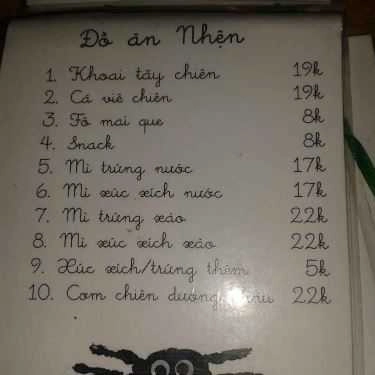 Đồ ăn Nhện
1. Khoai tây chiên 19k
2. Cá viê chiên 19k
3. Fô mai que 8k
4. Snack 8k
5. Mì trứng nước 17k
6. Mì xúc xích nước 17k
7. Mì trứng xào 22k
8. Mì xúc xích xào 22k
9. Xúc xích/trứng thêm 5k
10. Cơm chiên dương 22k